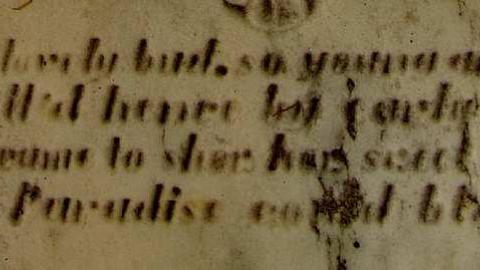 lovely bud, so young
ll'd hence by early
came to shew how sweet
Paradise would bl